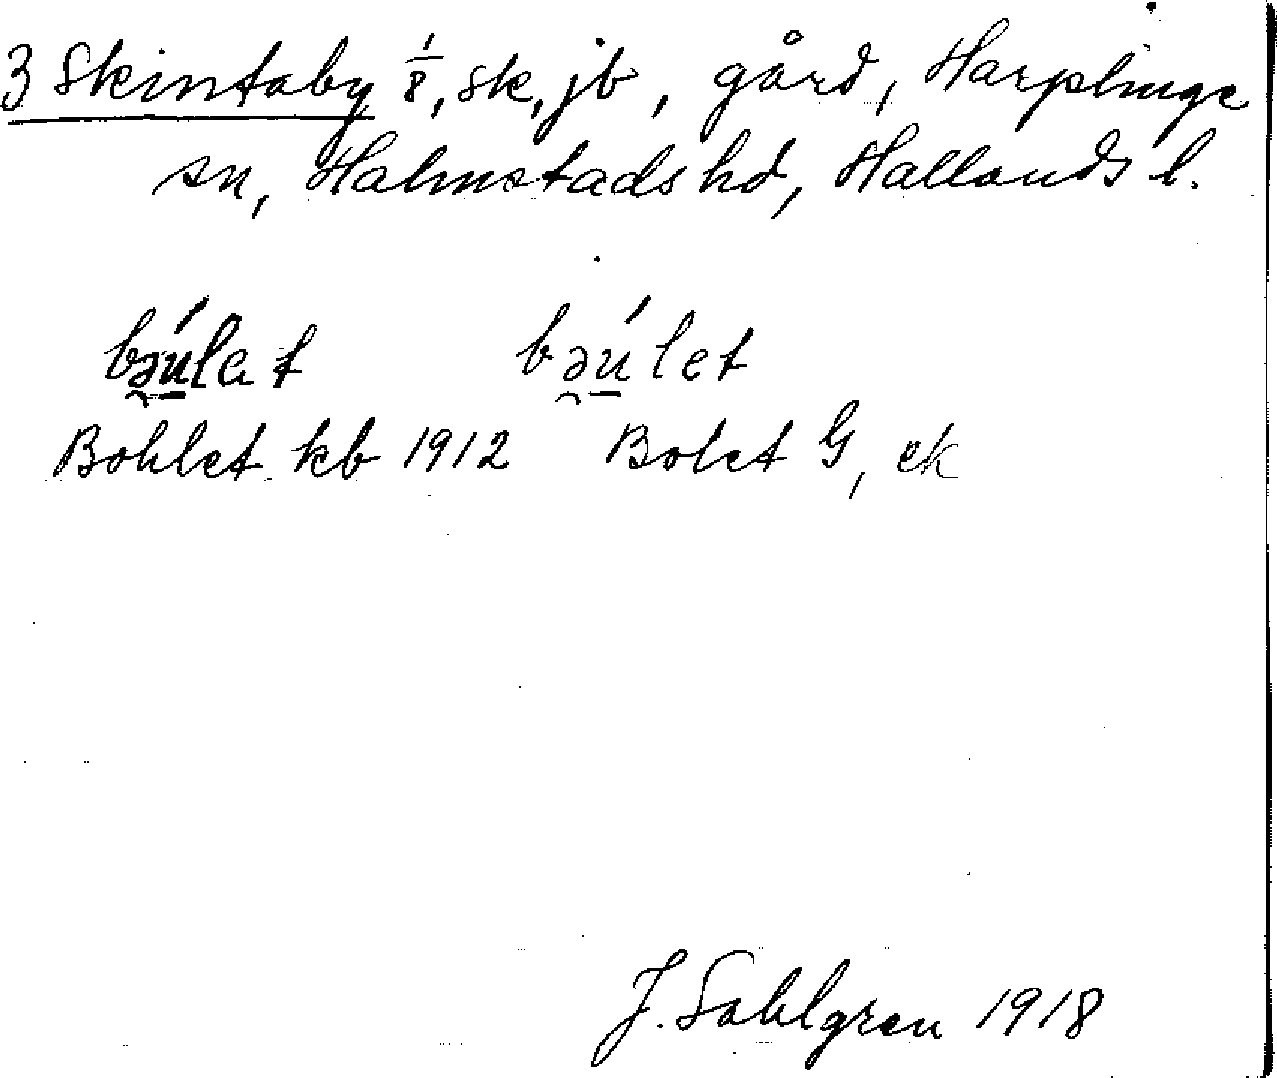 3 Skintaby 1/8, sk, jb, gård, Harplinge
sn, Halmstads hd, Hallands l.
bə̯ú̱lat bə̯ú̱let
Bohlet kb 1912 Bolet G, ek
J. Sahlgren 1918